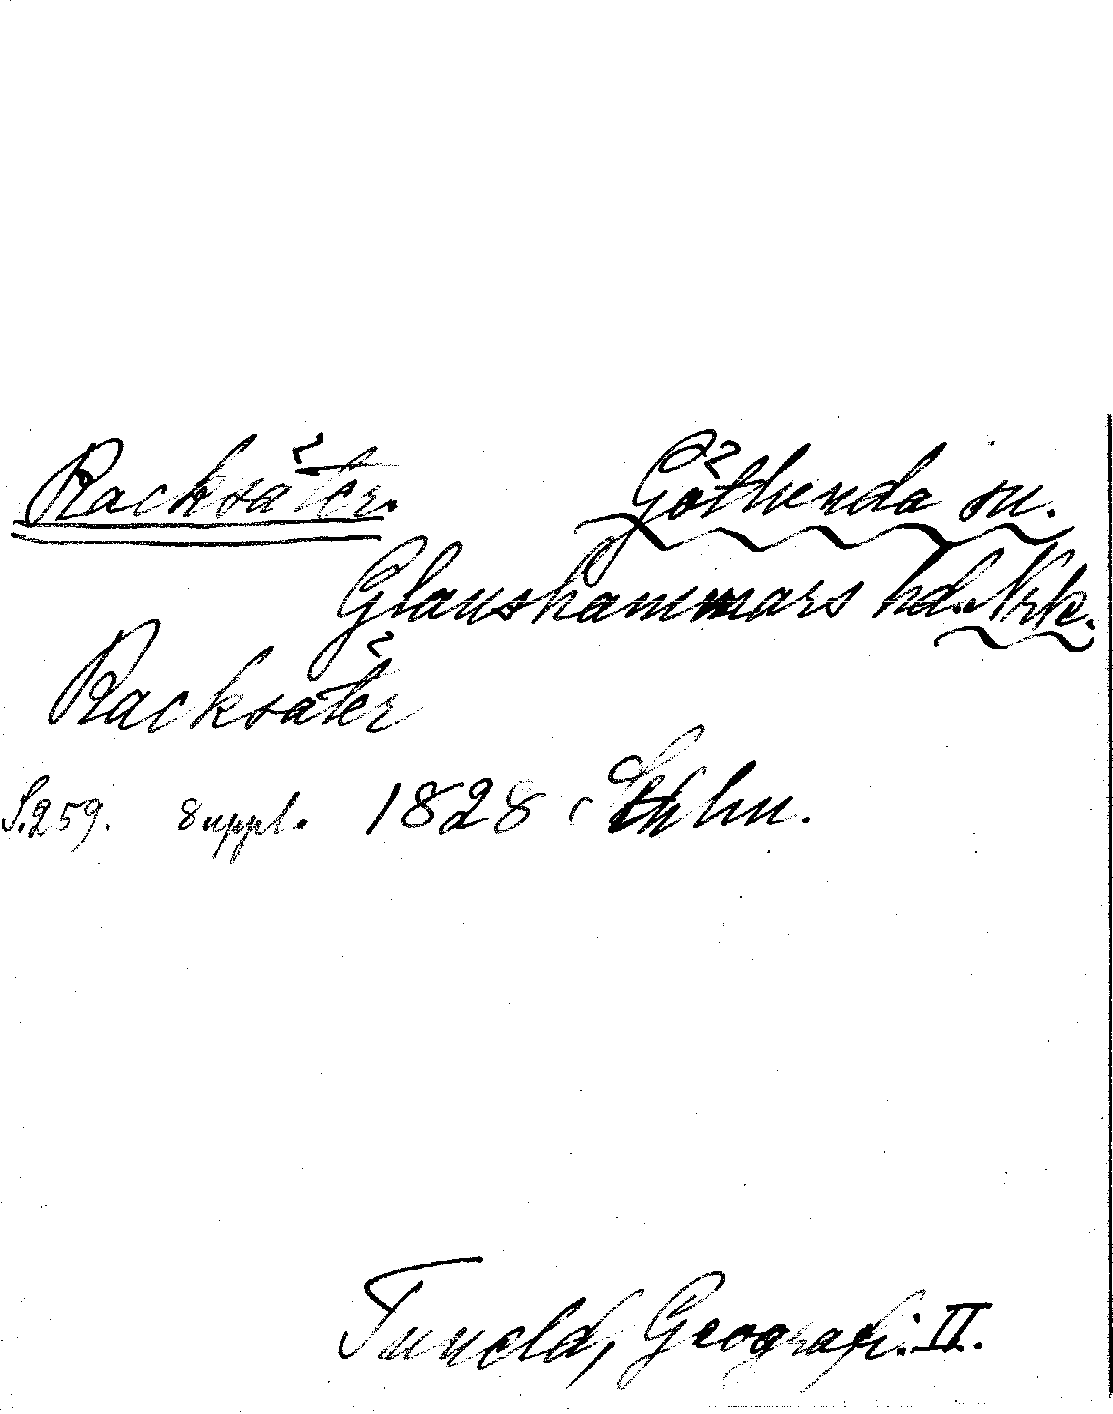 Racksäter. Göthlunda sn.
Glanshammars hd. Nrk.
Racksäter
S. 259. Suppl. 1828, Sthlm.
Tuneld, Geografi. II.